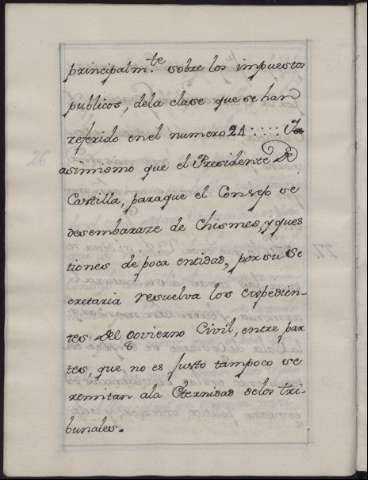 principalm.te sobre los impuestos
publicos, dela clase que se han
referido en el numero 21 :::::
asimismo que el Presidente De
Castilla, paraque el Consejo se
desembaraze de chismes, y ques
tiones de poca entidad, por su Se
cretaria resuelva los expedien
tes del Govierno Civil, entre par
tes, que no es justo tampoco se
remitan ala Eternidad delos Tri
bunales.